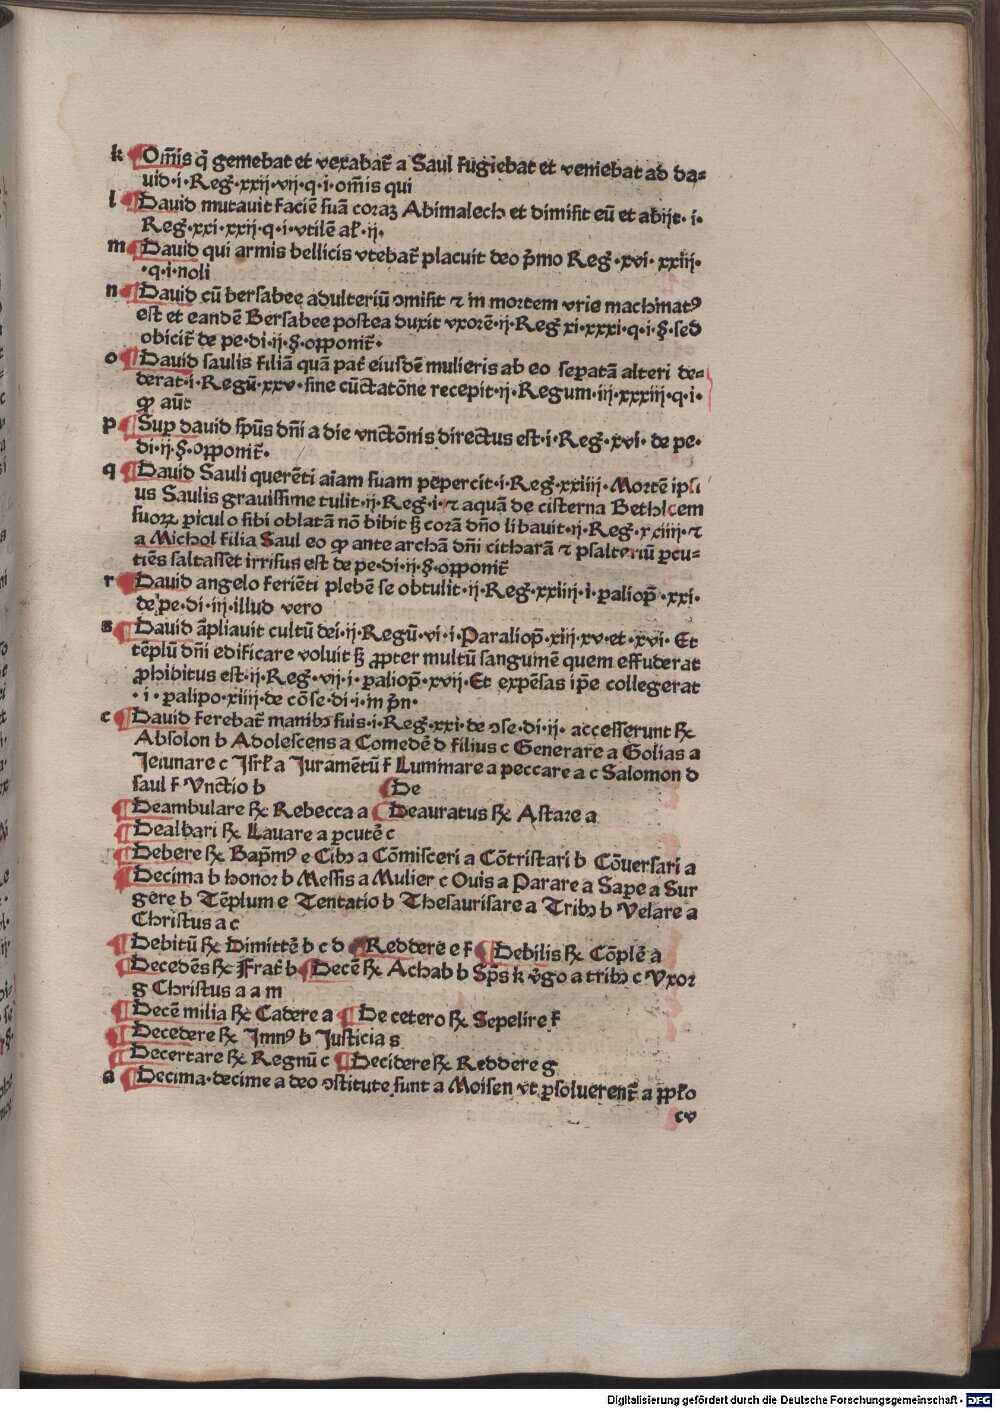 k Om̄is q̇ gemebat et vexabat᷑ a Saul fugiebat et veniebat ad da=
uid·i·Reg̃·xxij·vij·q·i·om̄is qui
l Dauid mutauit faciē suā coraꝫ Abimalech et dimisit eū et abijt· i·
Reg̃·xxi·xxij·q·i·vtilē al̓·ij·
m Dauid qui armis bellicis vtebat᷑ placuit deo p̄mo Reg̃·xvi· xxiij·
·q·i·noli
n Dauid cū bersabee adulteriū ꝯmisit ⁊ in mortem vrie machinatꝰ
est et eandē Bersabee postea duxit vxorē·ij·Reg̃ xi·xxxi·q·i·§·sed
obicit᷑ de pe·di·ij·§·oꝑponit᷑·
o Dauid saulis filiā quā pat̓ eiusdē mulieris ab eo seꝑatā alteri de=
derat·i·Regū·xxv·sine cūctatōne recepit·ij·Regum·iij·xxxiij·q·i·
ꝙ aūt
p Suꝑ dauid sp̄us dn̄i a die vnctōnis directus est·i·Reg̃·xvi· de pe·
di·ij·§·oꝑponit᷑·
q Dauid Sauli querēti aīam suam pepercit·i·Reg̃·xxiiij·Mortē ipsi
us Saulis grauissime tulit·ij·Reg̃·i·⁊ aquā de cisterna Bethlcem
suoꝝ ꝑiculo sibi oblatā nō bibit sꝫ corā dn̄o libauit·ij·Reg̃·xxiiij·⁊
a Michol filia Saul eo ꝙ ante archā dn̄i citharā ⁊ psalteriū ꝑcu=
tiēs saltasset irrisus est de pe·di·ij·§·oꝑponit᷑
r Dauid angelo feriēti plebē se obtulit·ij·Reg̃·xxiiij·i·ꝑaliop̄·xxi·
de pe·di·iij·illud vero
s Dauid āpliauit cultū dei·ij·Regū·vi·i·Paraliop̄·xiij·xv·et·xvi· Et
tēplū dn̄i edificare voluit sꝫ ꝓpter multū sanguinē quem effuderat
ꝓhibitus est·ij·Reg̃·vij·i·ꝑaliop̄·xvij·Et expēsas ip̄e collegerat
·i·ꝑalipo·xiiij·de cōse·di·i·in p̄n·
c Dauid ferebat᷑ manibꝫ suis·i·Reg̃·xxi·de ꝯse·di·ij· accesserunt ℞
Absolon b Adolescens a Comedē d filius c Generare a Golias a
Jeiunare c Isrl̓ a Juramētū f Luminare a peccare a c Salomon d
saul f Vnctio b De
Deambulare ℞ Rebecca a Deauratus ℞ Astare a
Dealbari ℞ Lauare a ꝑcutē c
Debere ℞ Bap̄mꝰ e Cibꝫ a Cōmisceri a Cōtristari b Cōuersari a
Decima b honor b Messis a Mulier c Ouis a Parare a Saꝑe a Sur
gere b Tēplum e Tentatio b Thesaurisare a Tribꝫ b Velare a
Christus a c
Debitū ℞ Dimittē b c d Reddere e f Debilis ℞ Cōplē a
Decedēs ℞ Frat̓ b Decē ℞ Achab b Sp̄s k v̓go a tribꝫ c Vxor
g Christus a a m
Decē milia ℞ Cadere a De cetero ℞ Sepelire f
Decedere ℞ Inmꝰ b Justicia s
Decertare ℞ Regnū c Decidere ℞ Reddere g
a Decima·decime a deo ꝯstitute sunt a Moisen vt ꝑsoluerent᷑ a ꝓpl̓o
cv
Digitalisierung gefördert durch die Deutsche Forschungsgemeinschaft · DFG